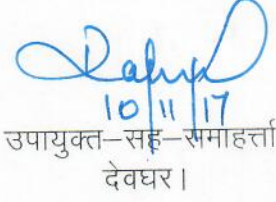 10/11/17
उपायुक्त–सह–समाहर्त्ता
देवघर।